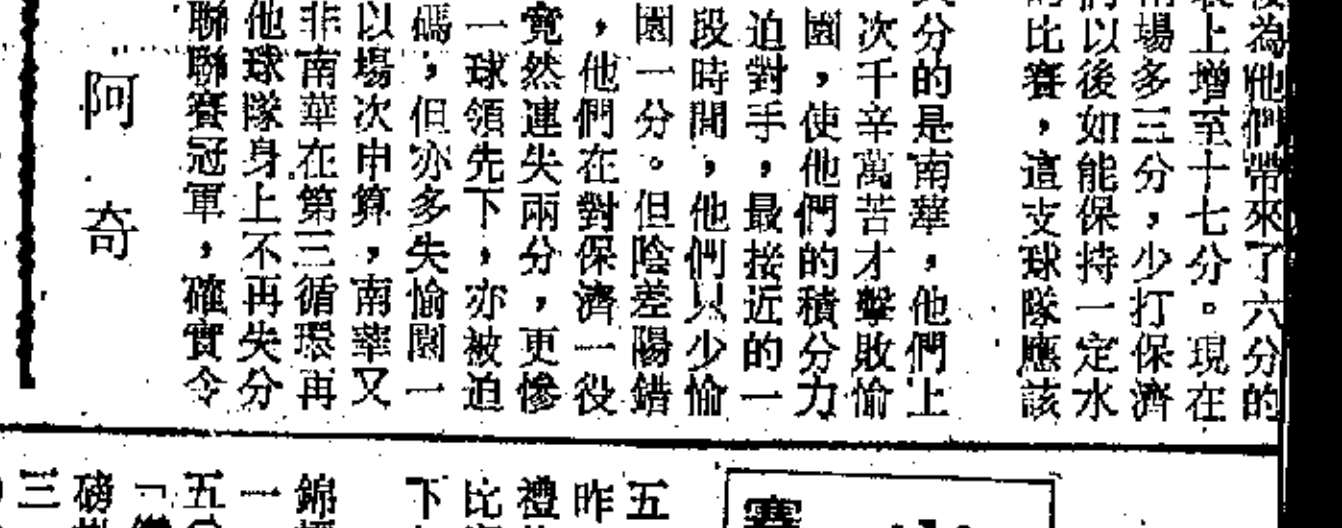 為他們帶來了六分的
上增至十七分。現在
場多三分，少打保濟
們以後如能保持一定水
的比賽，這支球隊應該
分的是南華，他們上
次千辛萬苦才擊敗愉
園，使他們的積分力
迫對手，最接近的一
段時間，他們只少愉
園一分。但陰差陽錯
，他們在對保濟一役
竟然連失兩分，更慘
一球領先下，亦被迫
碼，但亦多失愉園一
以場次申算，南華又
非南華在第三循環再
他球隊身上不再失分
聯聯賽冠軍，確實令
阿奇
賽
五
昨
禮
比
下
錦
一
五
「
磅
三